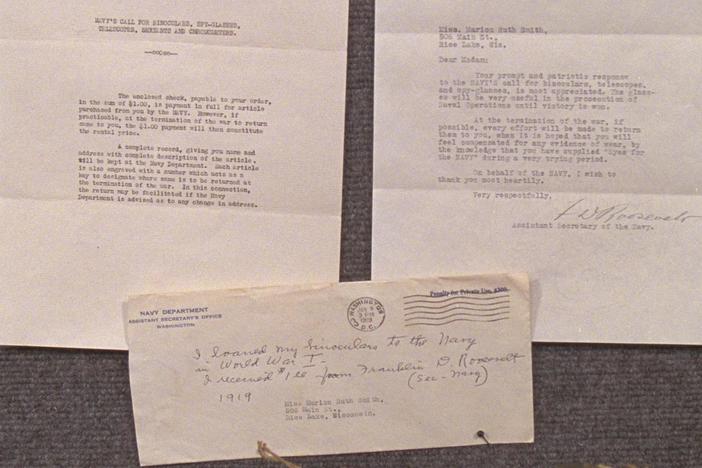 NAVY'S CALL FOR BINOCULARS, SPY-GLASSES,
TELESCOPES, SEXTANTS AND CHRONOMETERS.
The enclosed check, payable to your order,
in the sum of $1.00, is payment in full for article
purchased from you by the NAVY. However, if
practicable, at the termination of the war to return
same to you, the $1.00 payment will then constitute
the rental price.
A complete record, giving you name and
address with complete description of the article,
will be kept at the Navy Department. Each article
is also engraved with a number which acts as a
key to designate where same is to be returned at
the termination of the war. In this connection,
the return may be facilitated if the Navy
Department is advised as to any change in address.
Miss. Marion Ruth Smith,
505 Main St.,
Rice Lake, Wis.
Dear Madam:
Your prompt and patriotic response
to the NAVY'S call for binoculars, telescopes,
and spy-glasses, is most appreciated. The glass-
es will be very useful in the prosecution of
Naval Operations until victory is won.
At the termination of the war, if
possible, every effort will be made to return
them to you, when it is hoped that you will
feel compensated for any evidence of wear, by
the knowledge that you have supplied "Eyes for
the NAVY" during a very trying period.
On behalf of the NAVY, I wish to
thank you most heartily.
Very respectfully,
F D Roosevelt
Assistant Secretary of the Navy.
NAVY DEPARTMENT
ASSISTANT SECRETARY'S OFFICE
WASHINGTON
WASHINGTON
1919
D.C.
Penalty for Private Use, $300.
I loaned my binoculars to the Navy
in World War I-
I received $1.00 from Franklin D. Roosevelt
(Sec-Navy)
1919
Miss Marion Ruth Smith,
505 Main St.,
Rice Lake, Wisconsin.